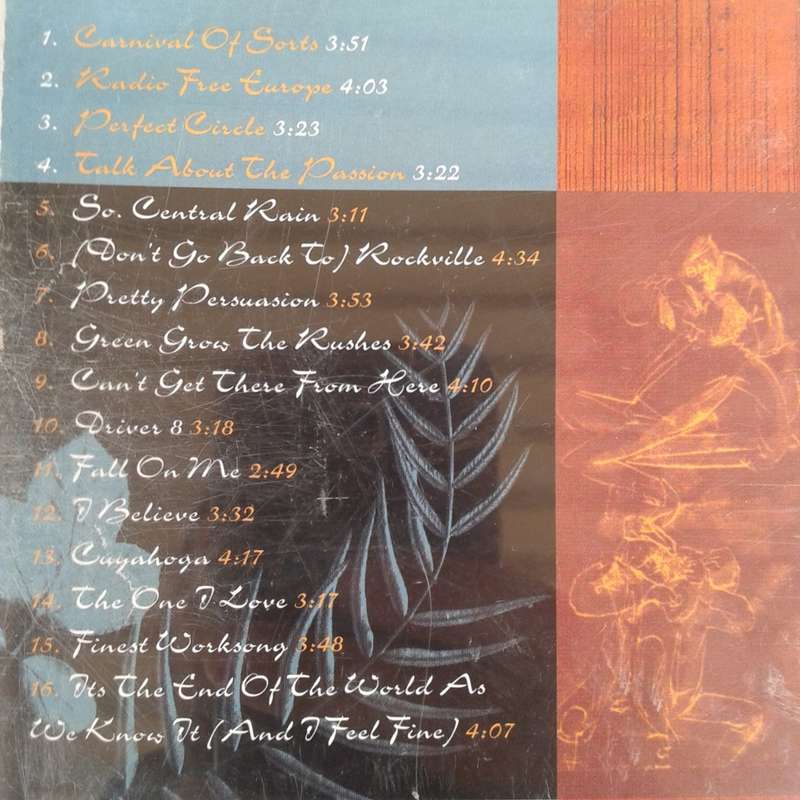 1. Carnival Of Sorts 3:51
2. Radio Free Europe 4:03
3. Perfect Circle 3:23
4. Talk About The Passion 3:22
5. So. Central Rain 3:11
6. (Don't Go Back To) Rockville 4:34
7. Pretty Persuasion 3:53
8. Green Grow The Rushes 3:42
9. Can't Get There From Here 4:10
10. Driver 8 3:18
11. Fall On Me 2:49
12. I Believe 3:32
13. Cuyahoga 4:17
14. The One I Love 3:17
15. Finest Worksong 3:48
16. Its The End Of The World As
We Know It (And I Feel Fine) 4:07